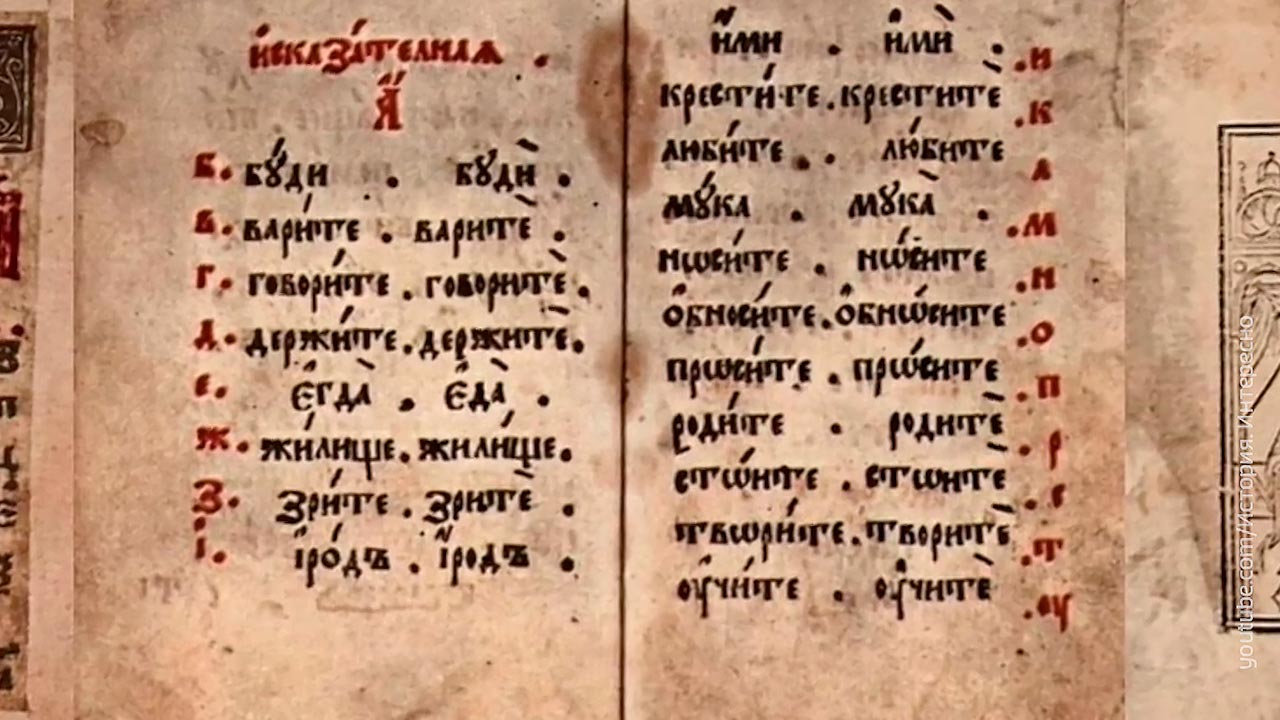 и҆сказа́телнаѧ .
А҆́
Б. бꙋ́ди . бꙋдѝ .
В. вари́те . варитѐ .
Г. говори́те . говоритѐ .
Д. держи́те . держитѐ .
Е. є҆гда̀ . є҆да̀ .
Ж. жи́лище . жили́ще .
З. зри́те . зритѐ .
І. і҆ро́дъ . і҆́родъ .
и҆́ми . и҆мѝ . И
крести́те . креститѐ . К
люби́те . . лю́бите Л
мꙋ́ка . мꙋка̀ . М
нѡси́те . нѡ́сите . Н
ѻ҆бноси́те . ѻ҆бнѡ́сите . О
прѡси́те . прѡ́сите . П
роди́те . родитѐ . Р
стѡ́ите . стѡитѐ . С
твѡри́те . творитѐ . Т
ᲂу҆чи́те . ᲂу҆читѐ . Ѹ
youtube.com/История. Интересно